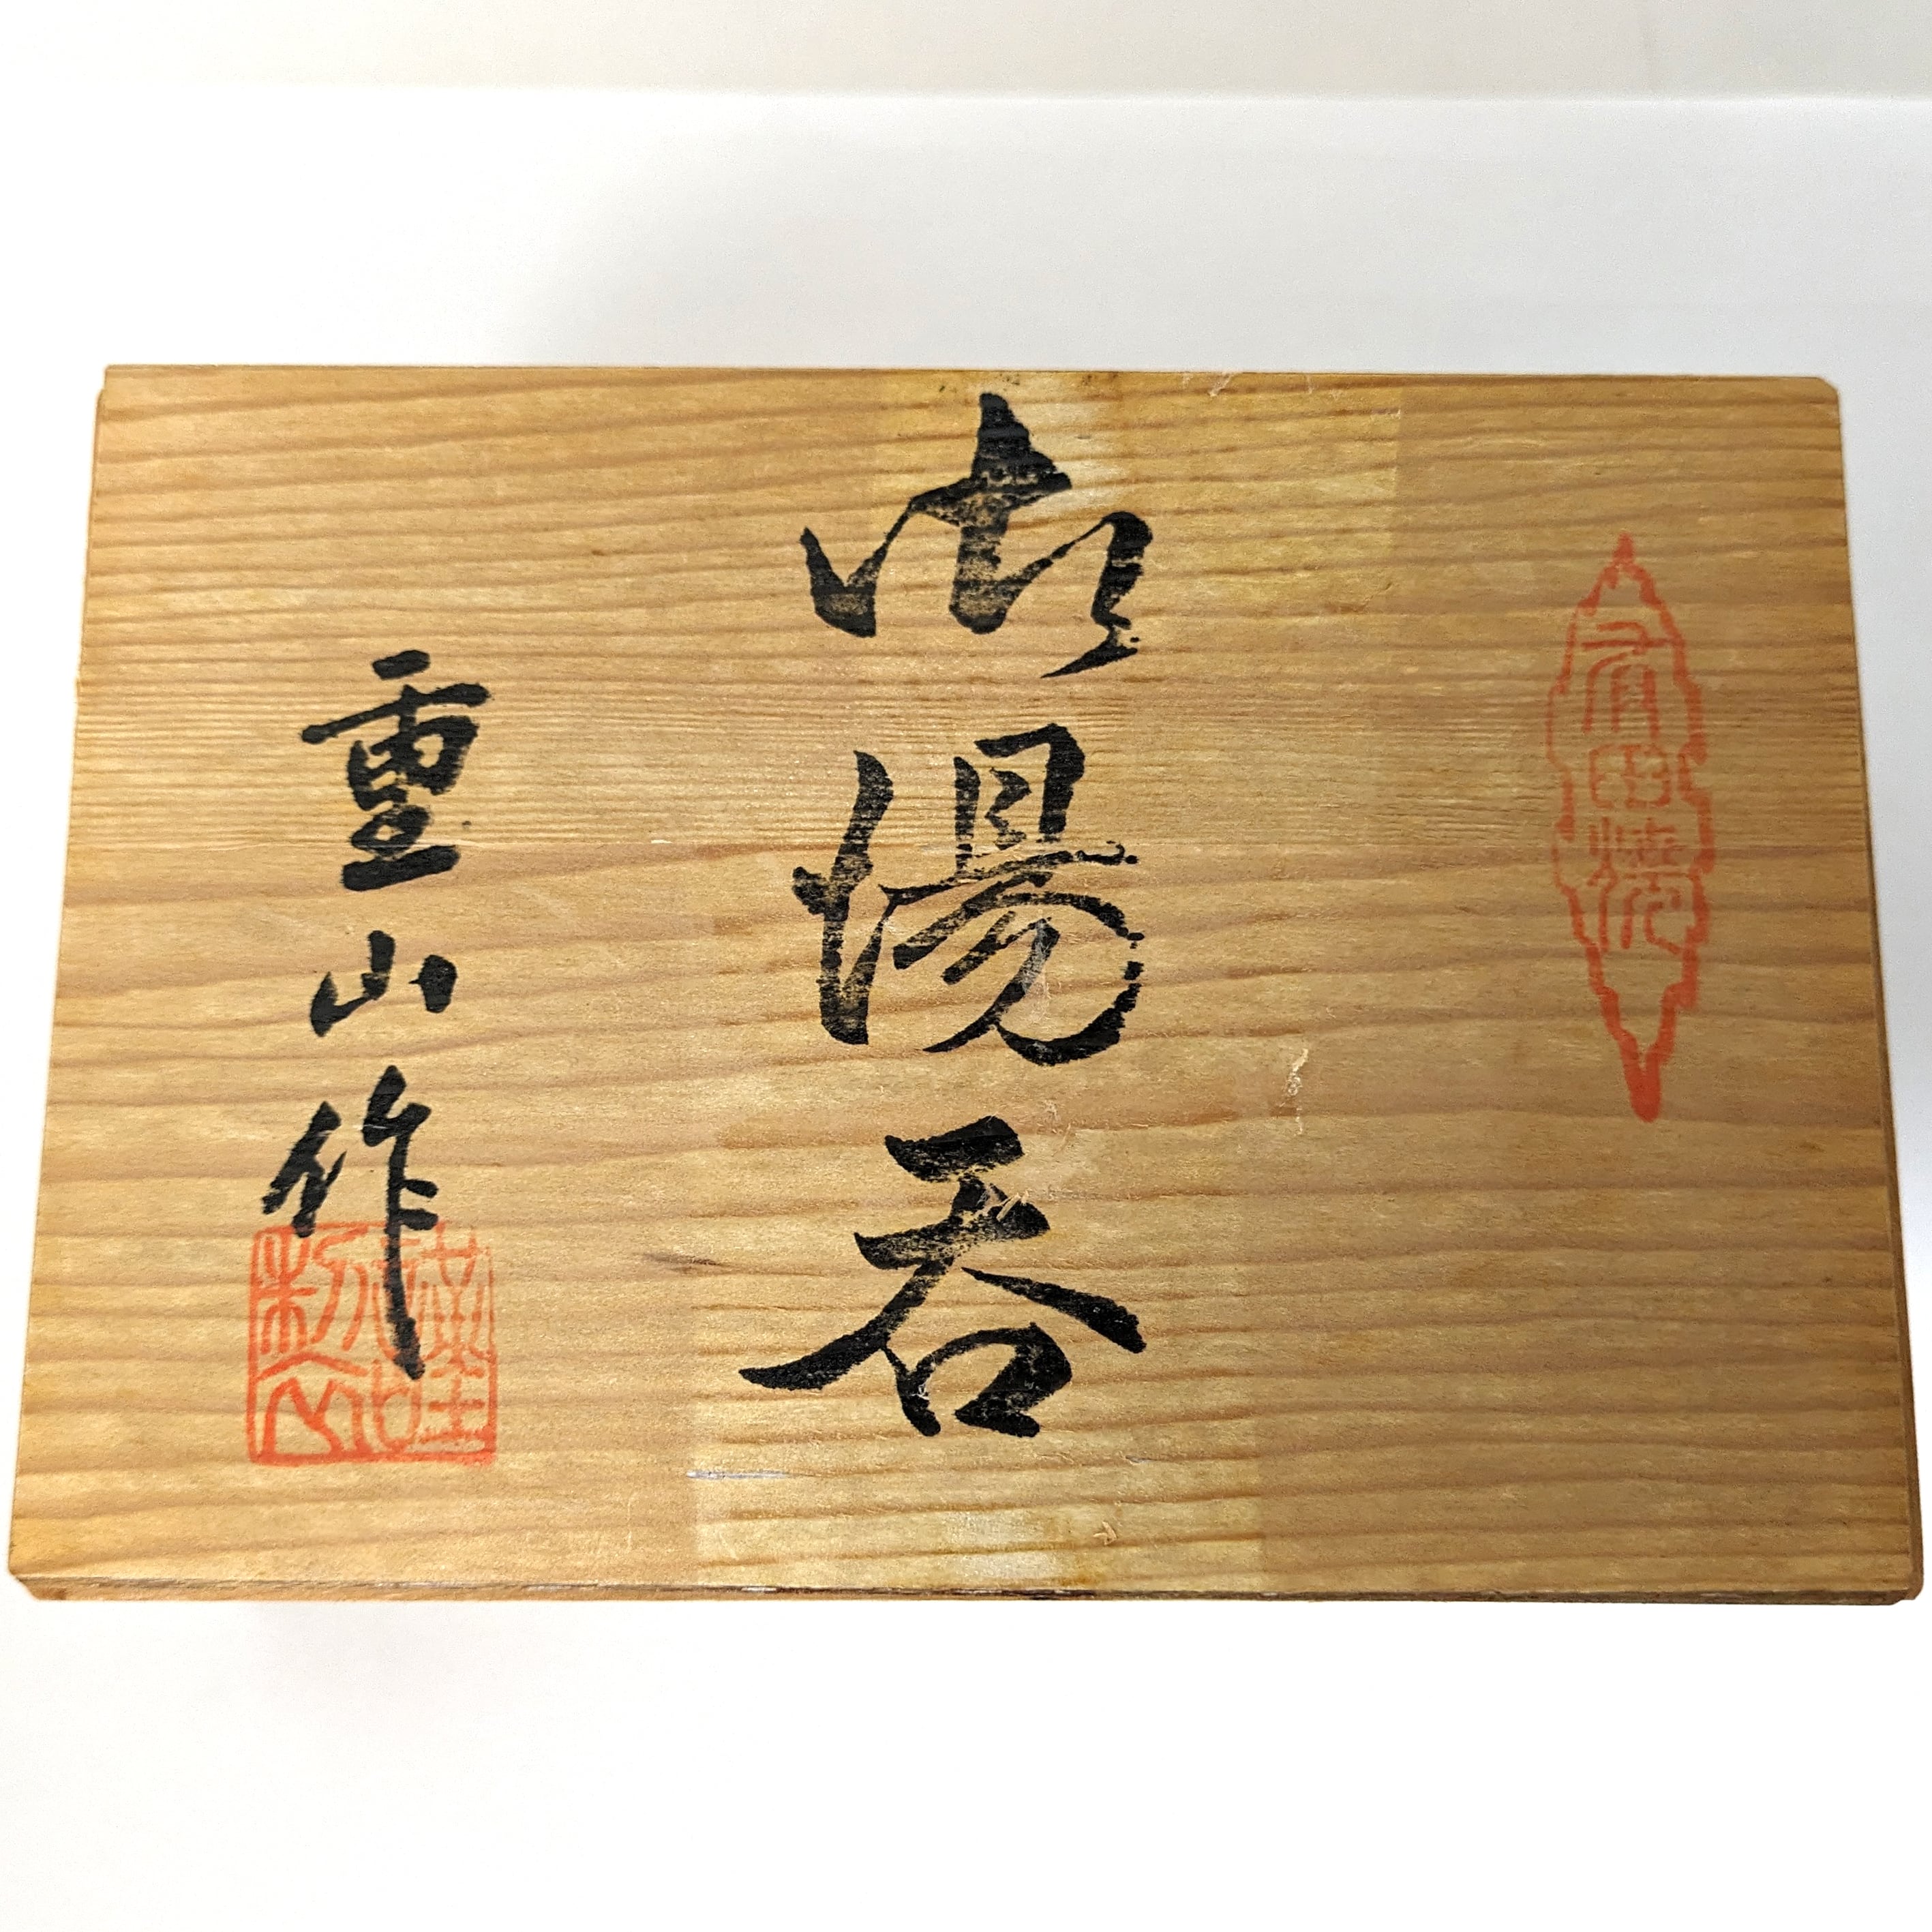 有田焼
御湯呑
重山作